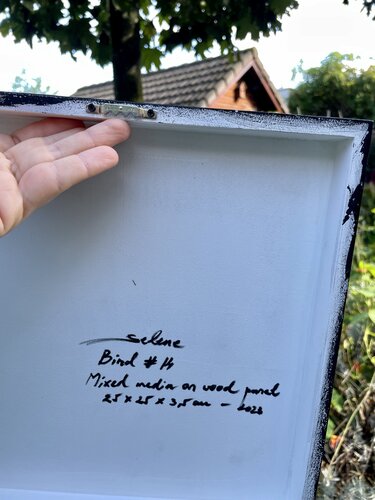 selene
Bind # 14
Mixed media on wood panel
25 x 25 x 3,5 cm - 2023